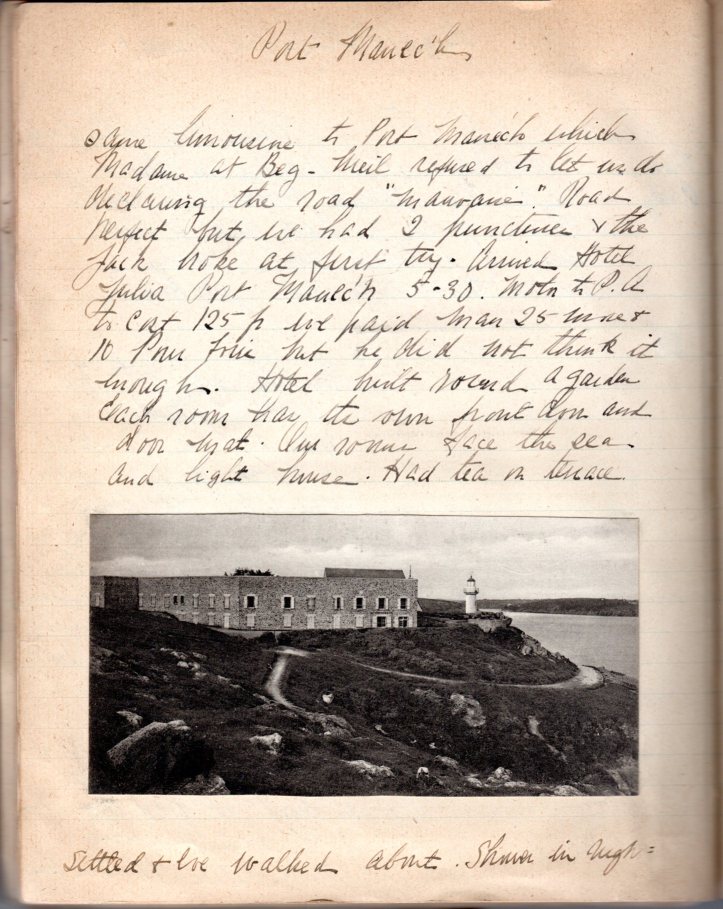 Port Manec'h
same limousine to Port Manec'h which
Madame at Beg-Meil refused to let us do
declaring the road "mauvaise". Road
perfect but we had 2 punctures & the
jack broke at first try. Arrived Hotel
Julia Port Manec'h 5-30. Motor to P.A
to cost 125 f we paid man 25 more &
10 Pour boire but he did not think it
enough. Hotel built round a garden
Each room has its own front door and
door mat. Our rooms face the sea
and light house. Had tea on terrace.
Settled & we walked about. Shower in nigh=